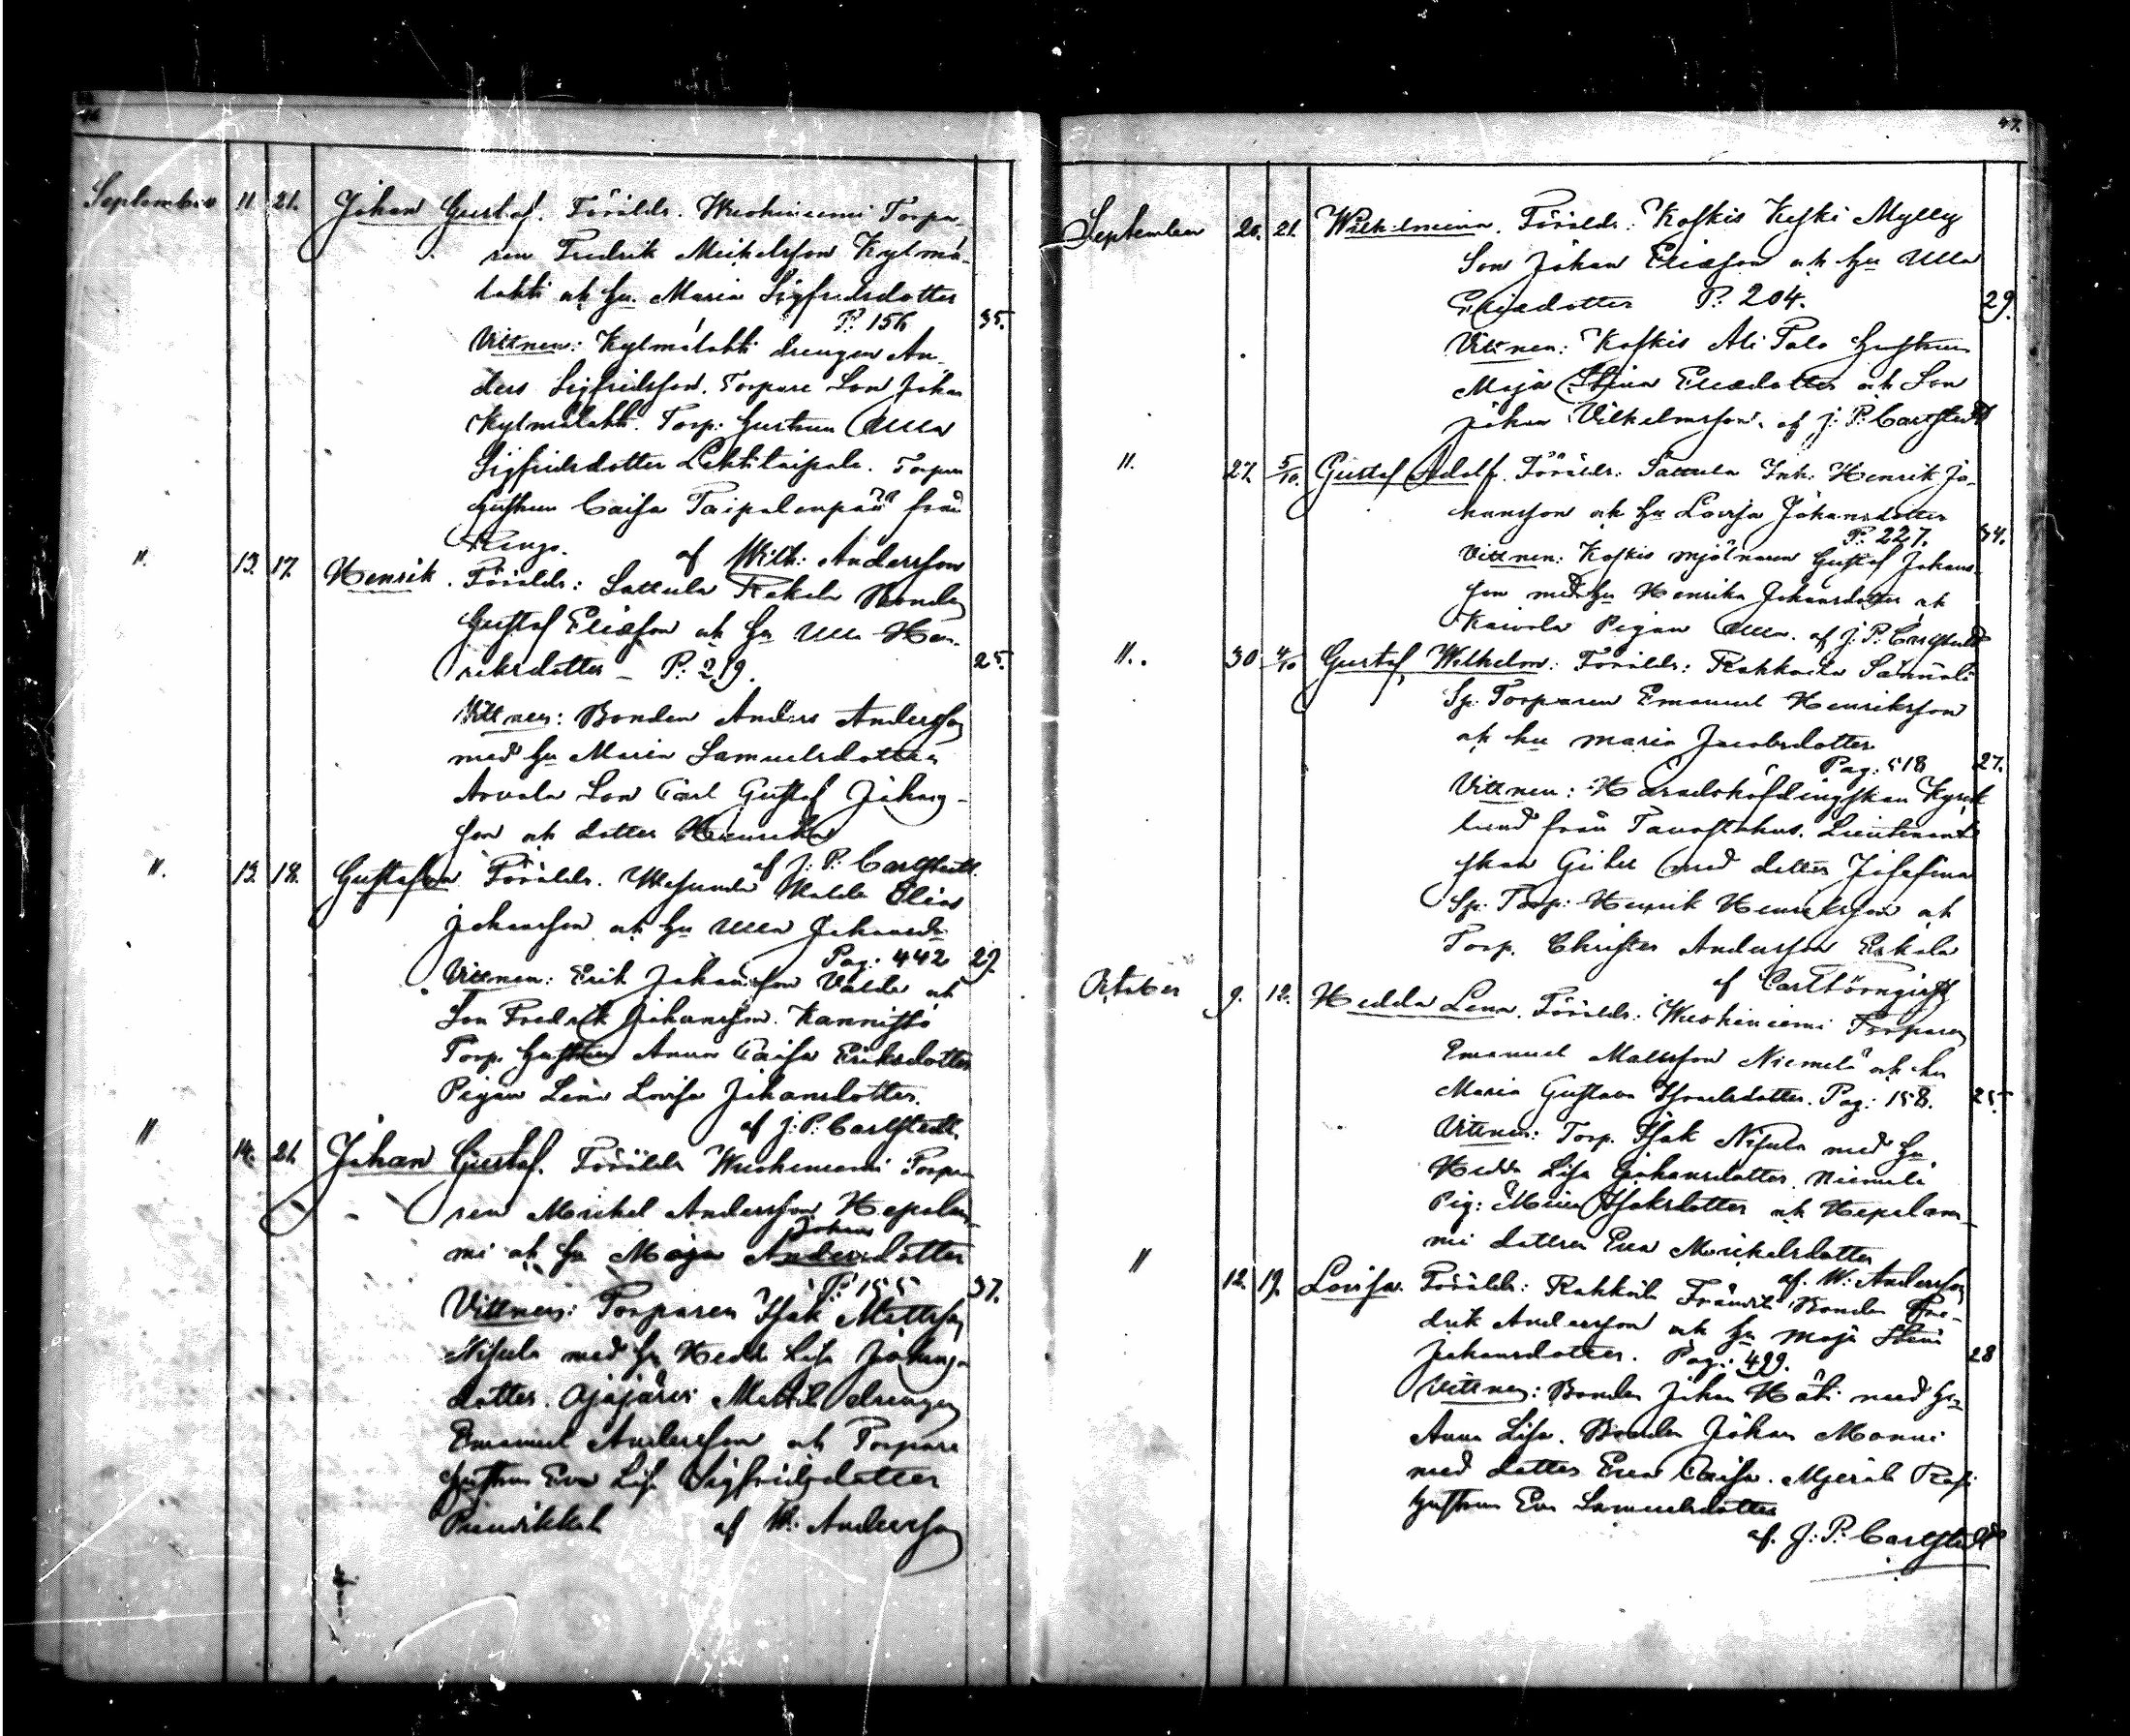 46
September 11. 21. Johan Gustaf. Föräldr. Wuohiniemi Torpa-
ren Fredrik Meikelsson Kylmä-
lahti ock hu. Maria Sigfredsdotter
P: 156 35.
Vittnen: Kylmälahti drengen An-
ders Sigfridsson. Torpare Son Johan
Kylmälahti. Torp: hustrun Ulla
Sigfridsdotter Lehtitaipale. Torpare
hustrun Caisa Taipalenpää från
Rengo. af Wilh: Andersson
11. 13. 17. Henrik. Föräldr: Sattula Rekola Bonden
Gustaf Eliæson ock hu Ulla Hen-
riksdotter – P: 219. 25.
Vittnen: Bonden Anders Andersson
med hu Maria Samuelsdotter
Arvola Son Carl Gustaf Johans-
son ock dotter Henrika
af J: P: Carlstedt.
11. 13. 18. Gustafva Föräldr. Mesunda Elias
Johansson ock hu Ulla Johansd:
Pag: 442 29.
Vittnen: Erik Johansson ock
Son Fredrik Johansson. Kannisto
Torp. hustrun Anna Caisa Eriksdotter
Pigan Lena Lovisa Johansdotter.
af J: P: Carlstedt.
11 14. 21. Johan Gustaf. Föräldr Wuohiniemi Torpa-
ren Michel Andersson Hepolam-
Johans
mi ock hu Maja Andersdotter
P: 155 37.
Vittnen: Torparen Isak Mattsson
Nisula med hu Hedda Lisa Johans-
dotter. Ojajärvi Mattila drengen
Emanuel Andersson ock Torpare
hustrun Eva Lisa Sigfridsdotter
af W: Andersson
47.
September 20. 21. Wilhelmina. Föräldr: Koskis Keski Mylly
Son Johan Eliæson ock hu Ulla
Eliædotter P: 204. 29.
Vittnen: Koskis Ali Palo hustrun
Maja Stina Eliædotter ock Son
Johan Vilhelmsson. af J: P: Carlstedt
11. 27. 5/10. Gustaf Adolf. Föräldr: Sattula Inh: Henrik Jo-
hansson ock hu Lovisa Johansdotter
P: 227. 34.
Vittnen: Koskis mjölnaren Gustaf Johans-
son med hu Henrika Johansdotter ock
Kaivola Pigan Ulla. af J: P: Carlstedt
11. 30 4/10 Gustaf Wilhelm: Föräldr: Rahkoila
Sp: Torparen Emanuel Henriksson
ock hu Maria Jacobsdotter
Pag: 518 27.
Vittnen: Häradshöfdingskan Kyrk
lund från Tavastehus. Lieutenant
skan med dotter Josefina
Sp: Torp: Henrik Henriksson ock
Torp. Christer Andersson Eskola
af
October 9. 12. Hedda Lena. Föräldr: Wuohiniemi Torparen
Emanuel Mattsson Niemelä ock hu
Maria Gustava Isaksdotter. Pag: 158. 25.
Vittnen: Torp. Isak Nisula med hu
Hedda Lisa Johansdotter. Niemelä
Pig: Maria Isaksdotter ock Hepolam-
mi dotteren Eva Michelsdotter
af. W: Andersson
11 12. 19. Lovisa. Föräldr: Rahkoila Bonden Fre-
drik Andersson ock hu Maja Stina
Johansdotter. Pag: 499. 28
Vittnen: Bonden Johan med hu
Anna Lisa. Bonden Johan Manni
med dotter Eva Caisa.
hustrun Eva Samuelsdotter
af. J: P: Carlstedt